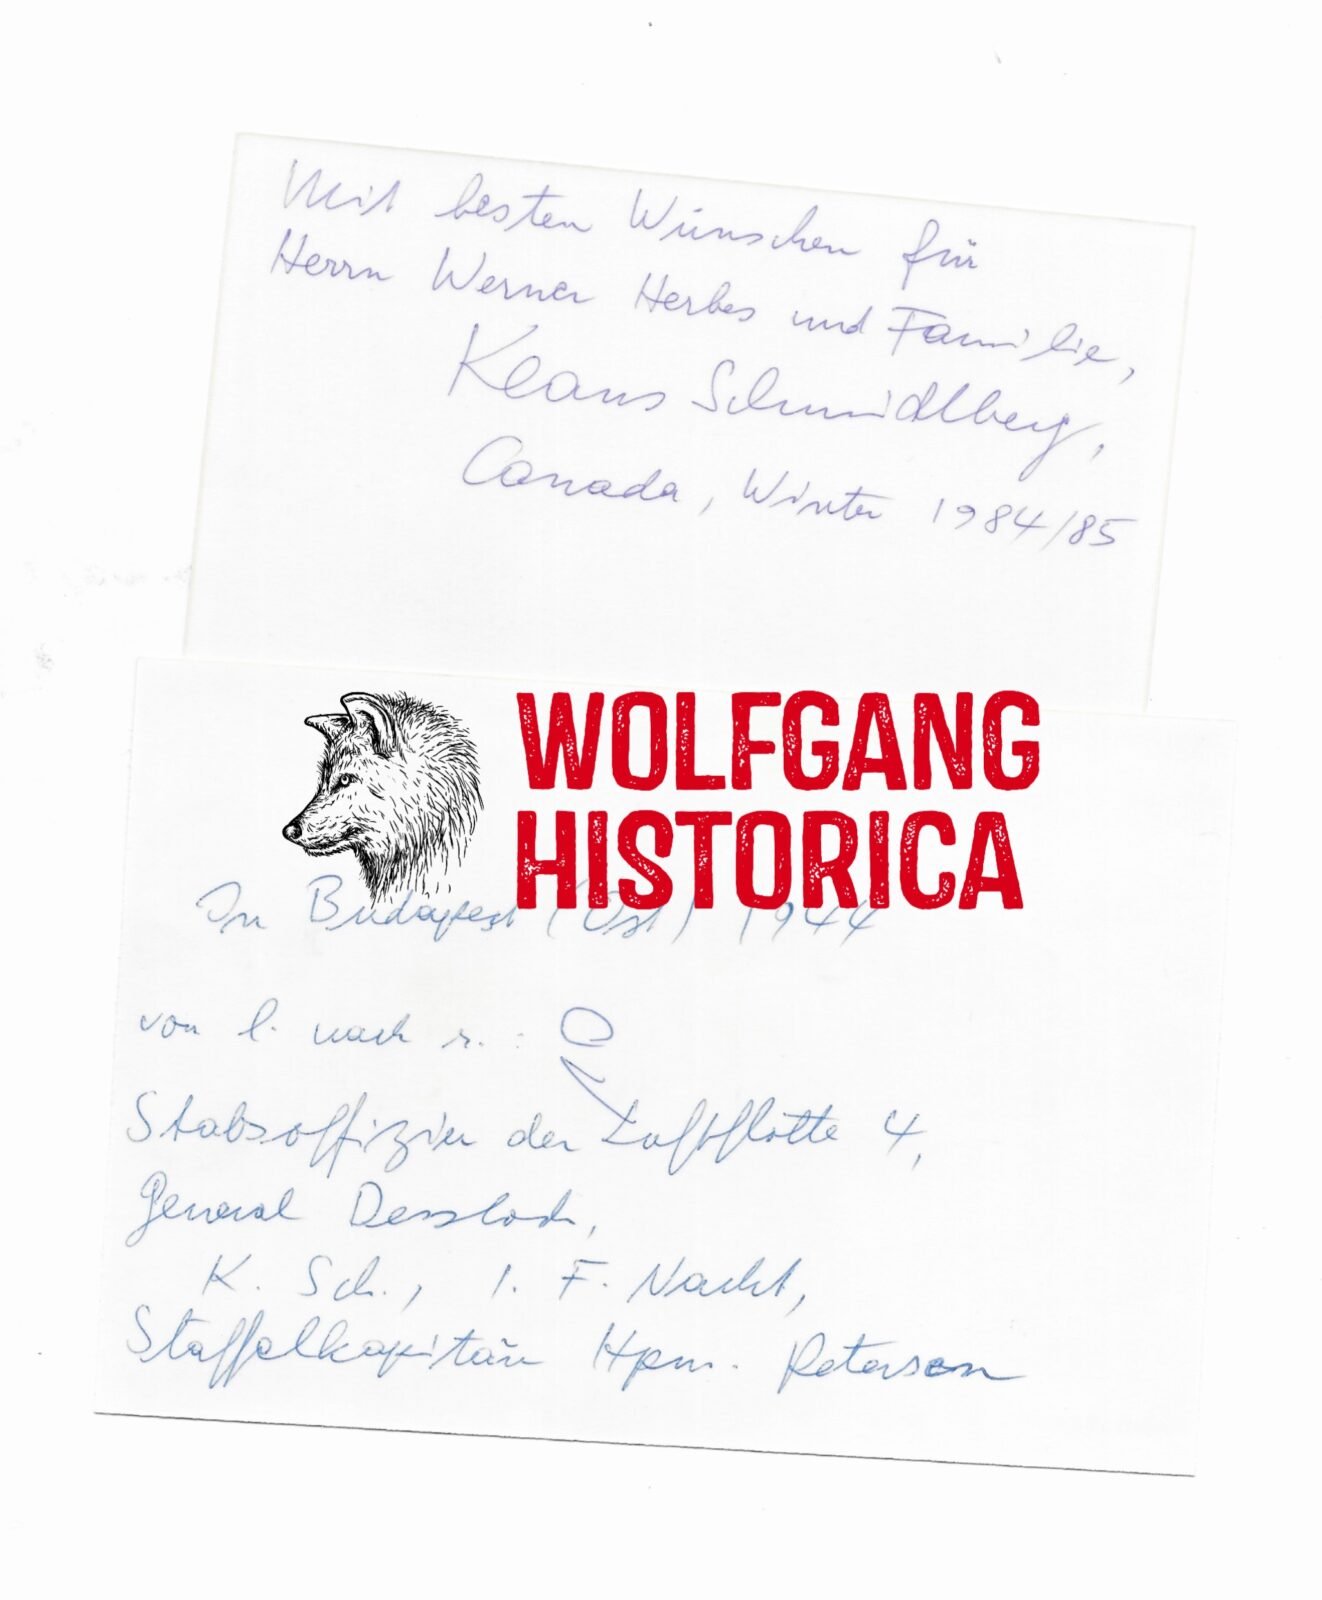 Mit besten Wünschen für
Herrn Werner Herbes und Familie,
Klaus Schmidlberg,
Canada, Winter 1984/85
WOLFGANG
HISTORICA
In Budapest (Ost) 1944
von l. nach r. :
Stabsoffizier der Luftflotte 4,
General Dessloch,
K. Sch., 1. F. Nacht,
Staffelkapitän Hpm. Petersen